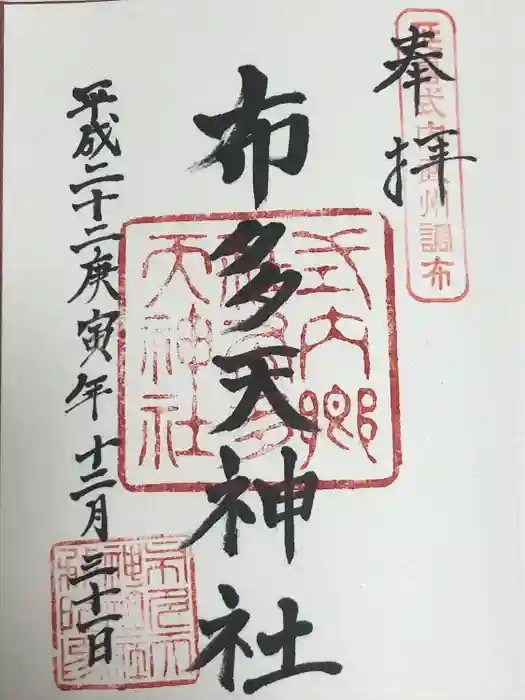 奉拝
延喜式内武州調布
布多天神社
式内郷
布多
天神社
平成二十二庚寅年十二月三十一日